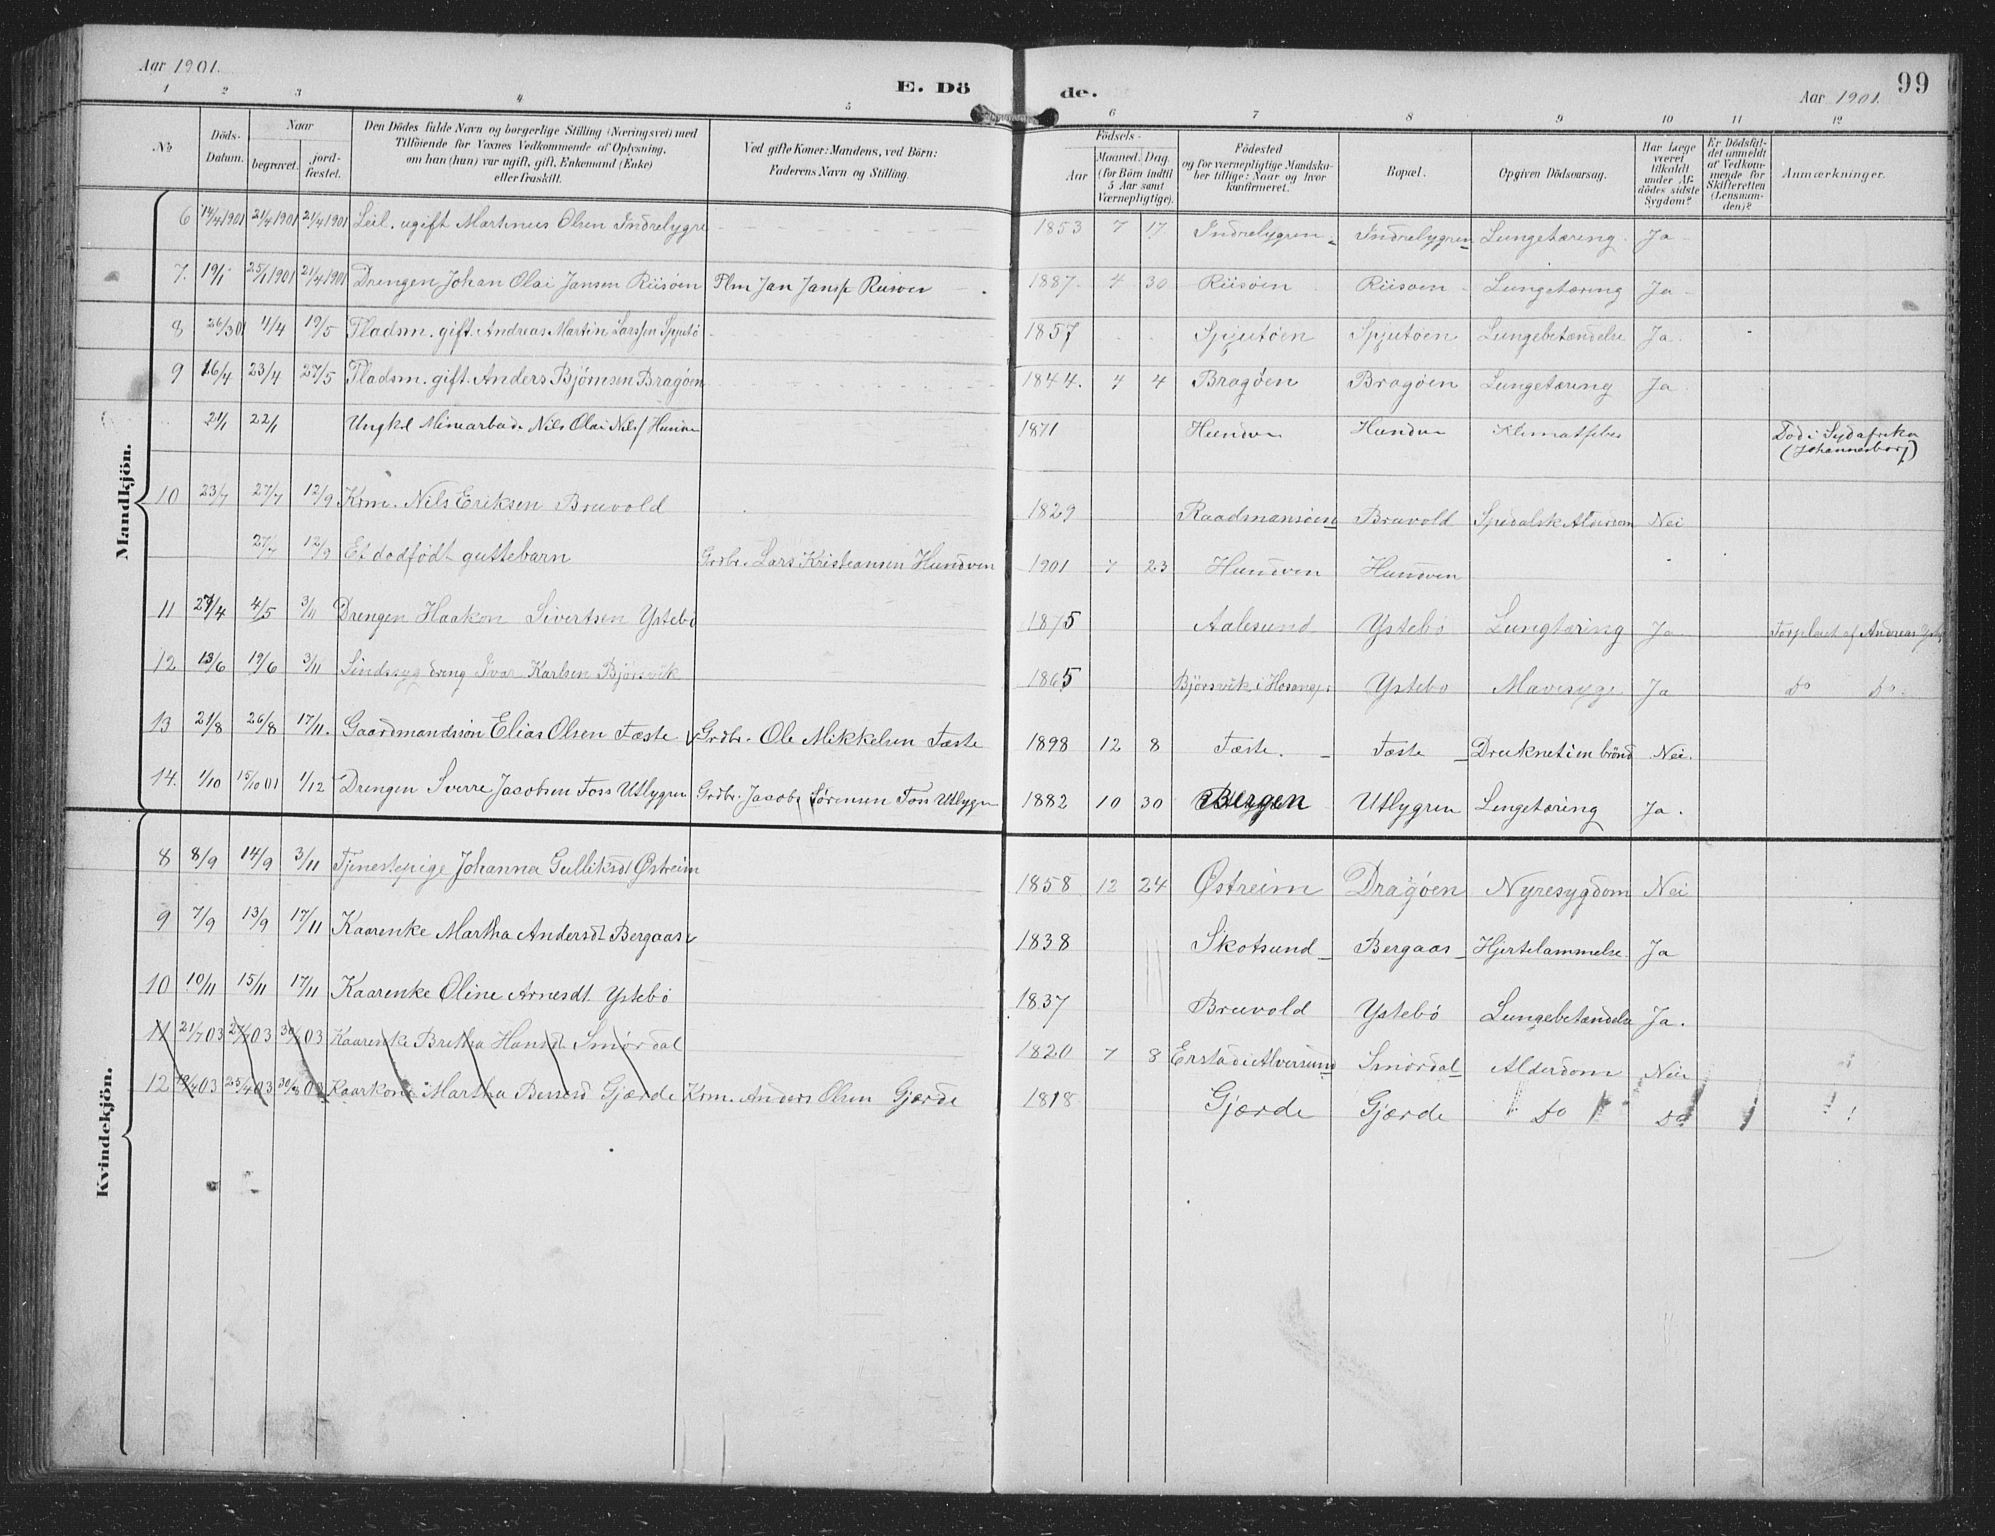 Aar 1901.
E. Dö
de.
Aar 1901.
99
1 2 3 4 5 6 7 8 9 10 11 12
No
Döds-Datum.
Naar
begravet.
jord-fæstet.
Den Dödes fulde Navn og borgerlige Stilling (Næringsvei) med
Tilföiende for Voxnes Vedkommende af Oplysning,
om han (hun) var ugift, gift, Enkemand (Enke)
eller fraskilt.
Ved gifte Koner: Mandens, ved Börn:
Faderens Navn og Stilling.
Födsels-
Aar
Maaned. Dag.
(for Börn indtil
5 Aar samt
Værnepligtige).
Födested
og for værnepligtige Mandska-
ber tillige: Naar og hvor
konfirmeret.
Bopæl.
Opgiven Dödsaarsag.
Har Læge
været
tilkaldt
under Af-
dödes sidste
Sygdom?
Er Dödsfal-
det anmeldt
af Vedkom-
mende for
Skifteretten
(Lensman-
den)?
Anmærkninger.
Mandkjön.
6 14/4 1901 21/4 1901 21/4 1901 Leil. ugift Martinus Olsen Indrelygre 1853 7 17 Indrelygren Indrelygren Lungetæring Ja
7. 19/1 25/1 1901 21/4 1901 Drengen Johan Olai Jansen Riisöen Plm Jan Jans Riisöen 1887. 4 30 Riisöen Riisöen Lungetæring Ja
8 26/3 01 4/4 19/5 Pladsm. gift Andreas Martin Larssen Spjutö 1857 Spjutöen Spjutöen Lungebetændelse Ja.
9 16/4 23/4 27/5 Pladsm. gift. Anders Björnsen Bragöen 1844. 7 4 Bragöen Bragöen Lungetæring Ja
21/1 22/1 Ungkl Minearbeid. Nils Olai Nils Hundv 1871 Hundv Hundv Klimatfeber Död i Sydafrika
(Johannesborg)
10 23/7 27/7 12/9 Krm. Nils Eriksen Bruvold 1829 Raadmansöen Bruvold Spedalsk Alderdom Nei
27/7 12/9 Et dödfödt guttebarn Grdbr. Lars Kristiansen Hundven 1901 7 23 Hundven Hundven
11 27/4 4/5 3/11 Drengen Haakon Sivertsen Ystebö 1875 Aalesund Ystebö Lungtæring Ja Forpleiet af Andreas
12 13/6 19/6 3/11 Sindssyg dreng Ivar Karlsen Björsvik 1865 Björsvik i Hosanger Ystebö Mavesyge Ja do do
13 21/8 26/8 17/11. Gaardmandssön Elias Olsen Fæste Grdbr. Ole Mikkelsen Fæste 1898 12 8 Fæste. Fæste Druknet i en brönd Nei.
14. 1/10 15/10 01 1/12 Drengen Sverre Jacobsen Foss Utlygren Grdbr. Jacob Sörensen Foss Utlygren 1882 10 30 Bergen Utlygren Lungetæring Ja.
Kvindekjön.
8 8/9 14/9 3/11 Tjenestepige Johanna Gulliksdt Östreim 1858 12 24 Östreim Dragöen Nyresygdom Nei
9 7/9 13/9 17/11 Kaarenke Martha Andersdt Bergaas 1838 Skotsund Bergaas Hjertelammelse. Ja
10 10/11 15/11 17/11 Kaarenke Oline Arnesdt. Ystebö 1837 Bruvold Ystebö Lungebetændelse Ja.
11 21/7 03 27/7 03 30/8 03 Kaarenke Britha Hansdt Smördal 1820 7 8 Erstad i Alversund Smördal Alderdom Nei
12 19/4 03 25/4 03 30/8 03 Kaarkone Martha Gjærde Krm. Anders Olsen Gjærde 1818 Gjærde Gjærde do do